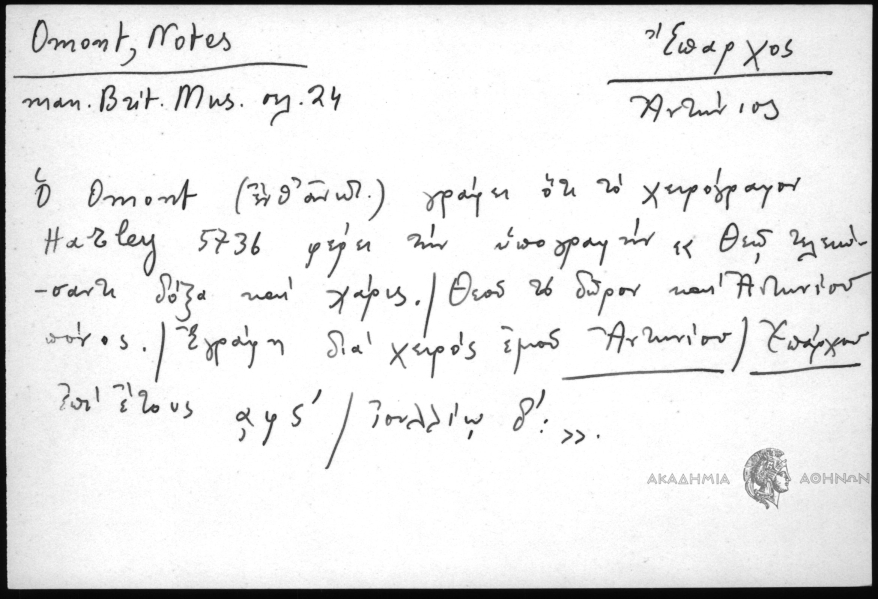 Omont, Notes
man. Brit. Mus. σελ. 24
Ἔπαρχος
Ἀντώνιος
Ὁ Omont (ἔνθ' ἀνωτ.) γράφει ὅτι τὸ χειρόγραφον
Harley 5736 φέρει τὴν ὑπογραφὴν « Θεῷ τελειώ-
-σαντι δόξα καὶ χάρις. / Θεοῦ τὸ δῶρον καὶ Ἀντωνίου
πόνος. / Ἐγράφη διὰ χειρὸς ἐμοῦ Ἀντωνίου / Ἐπάρχου
Ἐπὶ ἔτους ͵αφς' / Ἰουλλίῳ δ': ».
ΑΚΑΔΗΜΙΑ ΑΘΗΝΩΝ